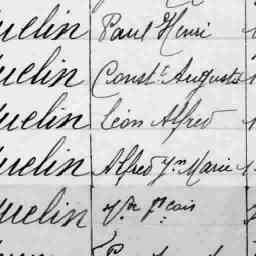 uelin Paul Henri
uelin Const.t Auguste
uelin Léon Alfred
uelin Alfred Jn Marie
uelin Jn frcois